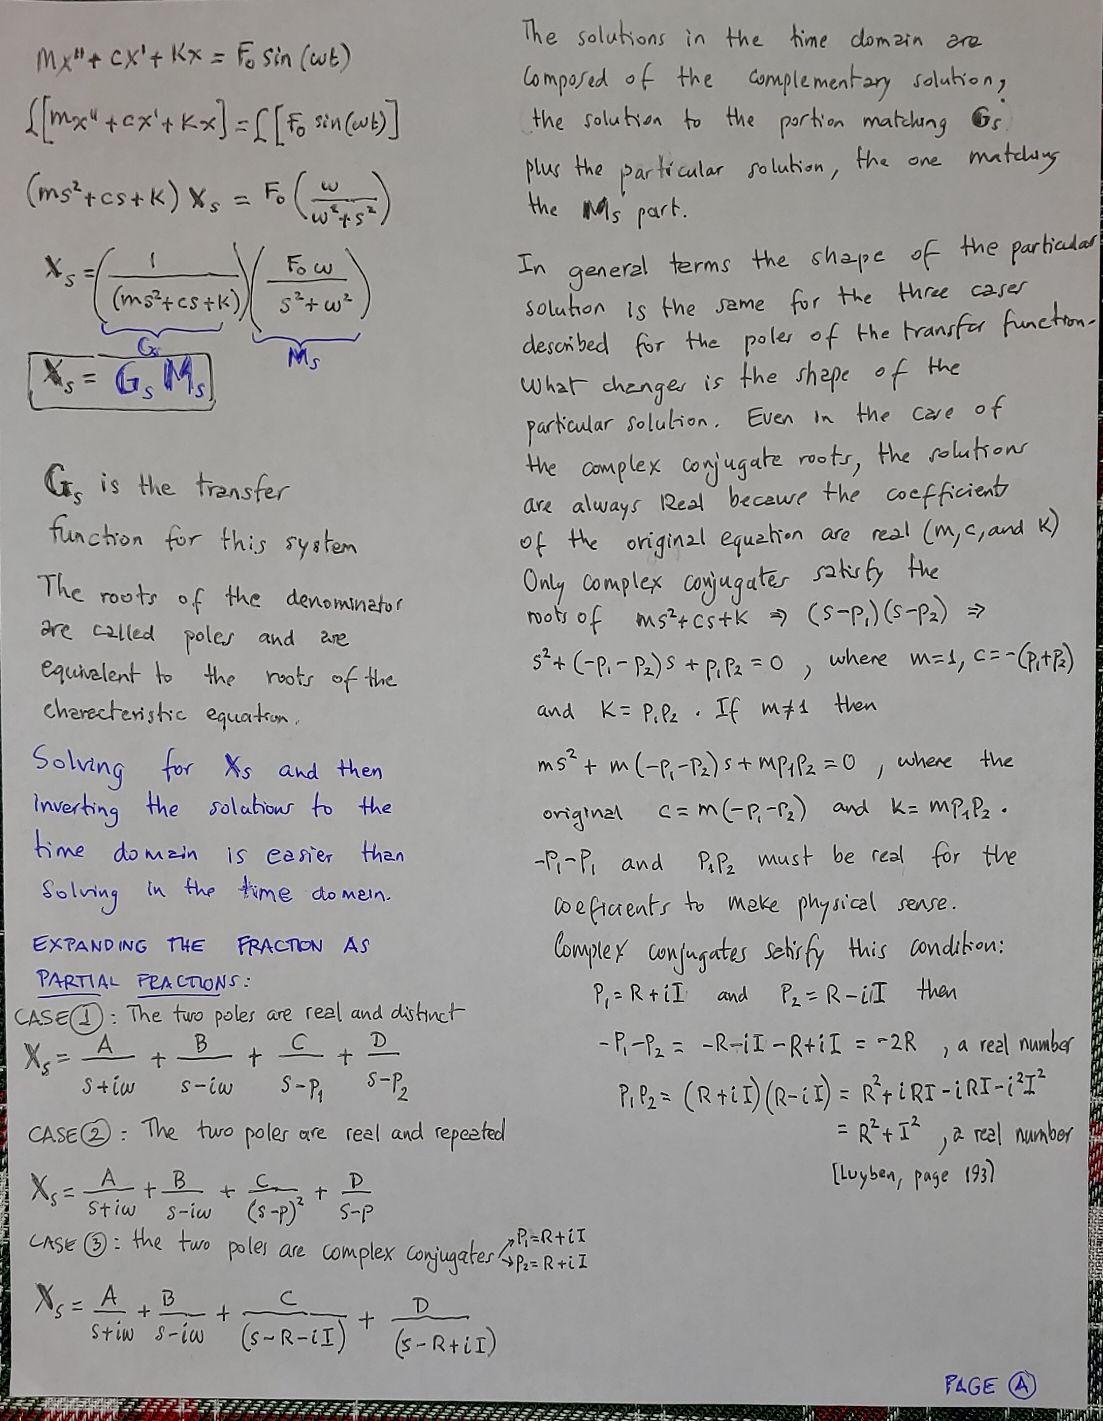 mx" + cx' + Kx = F₀ sin (ωt)
ℒ[mx" + cx' + Kx] = ℒ[F₀ sin(ωt)]
(ms²+cs+K) Xₛ = F₀ (ω / (ω²+s²))
Xₛ = (1 / (ms²+cs+K)) (F₀ω / (s²+ω²))
Gₛ Mₛ
Xₛ = Gₛ Mₛ
Gₛ is the transfer
function for this system
The roots of the denominator
are called poles and are
equivalent to the roots of the
charecteristic equation.
Solving for Xs and then
inverting the solutions to the
time domain is easier than
Solving in the time domain.
EXPANDING THE FRACTION AS
PARTIAL FRACTIONS:
CASE ①: The two poles are real and distinct
Xₛ = A/(s+iω) + B/(s-iω) + C/(s-P₁) + D/(s-P₂)
CASE ②: The two poles are real and repeated
Xₛ = A/(s+iω) + B/(s-iω) + C/(s-p)² + D/(s-p)
CASE ③: the two poles are complex conjugates → P₁=R+iI
→ P₂=R+iI
Xₛ = A/(s+iω) + B/(s-iω) + C/(s-R-iI) + D/(s-R+iI)
The solutions in the time domain are
Composed of the complementary solution,
the solution to the portion matching Gₛ
plus the particular solution, the one matching
the Mₛ part.
In general terms the shape of the particular
solution is the same for the three cases
described for the poles of the transfer function.
What changes is the shape of the
particular solution. Even in the case of
the complex conjugate roots, the solutions
are always Real because the coefficients
of the original equation are real (m, c, and K)
Only complex conjugates satisfy the
roots of ms²+cs+K ⇒ (s-P₁)(s-P₂) ⇒
s²+(-P₁-P₂)s + P₁P₂ = 0 , where m=1, c=-(P₁+P₂)
and K= P₁P₂ . If m≠1 then
ms² + m(-P₁-P₂)s + mP₁P₂ = 0 , where the
original c = m(-P₁-P₂) and K= mP₁P₂ .
-P₁-P₁ and P₁P₂ must be real for the
coeficients to make physical sense.
Complex conjugates satisfy this condition:
P₁=R+iI and P₂=R-iI then
-P₁-P₂ = -R-iI-R+iI = -2R , a real number
P₁P₂ = (R+iI)(R-iI) = R²+iRI-iRI-i²I²
= R²+I² , a real number
[Luyben, page 193]
PAGE Ⓐ